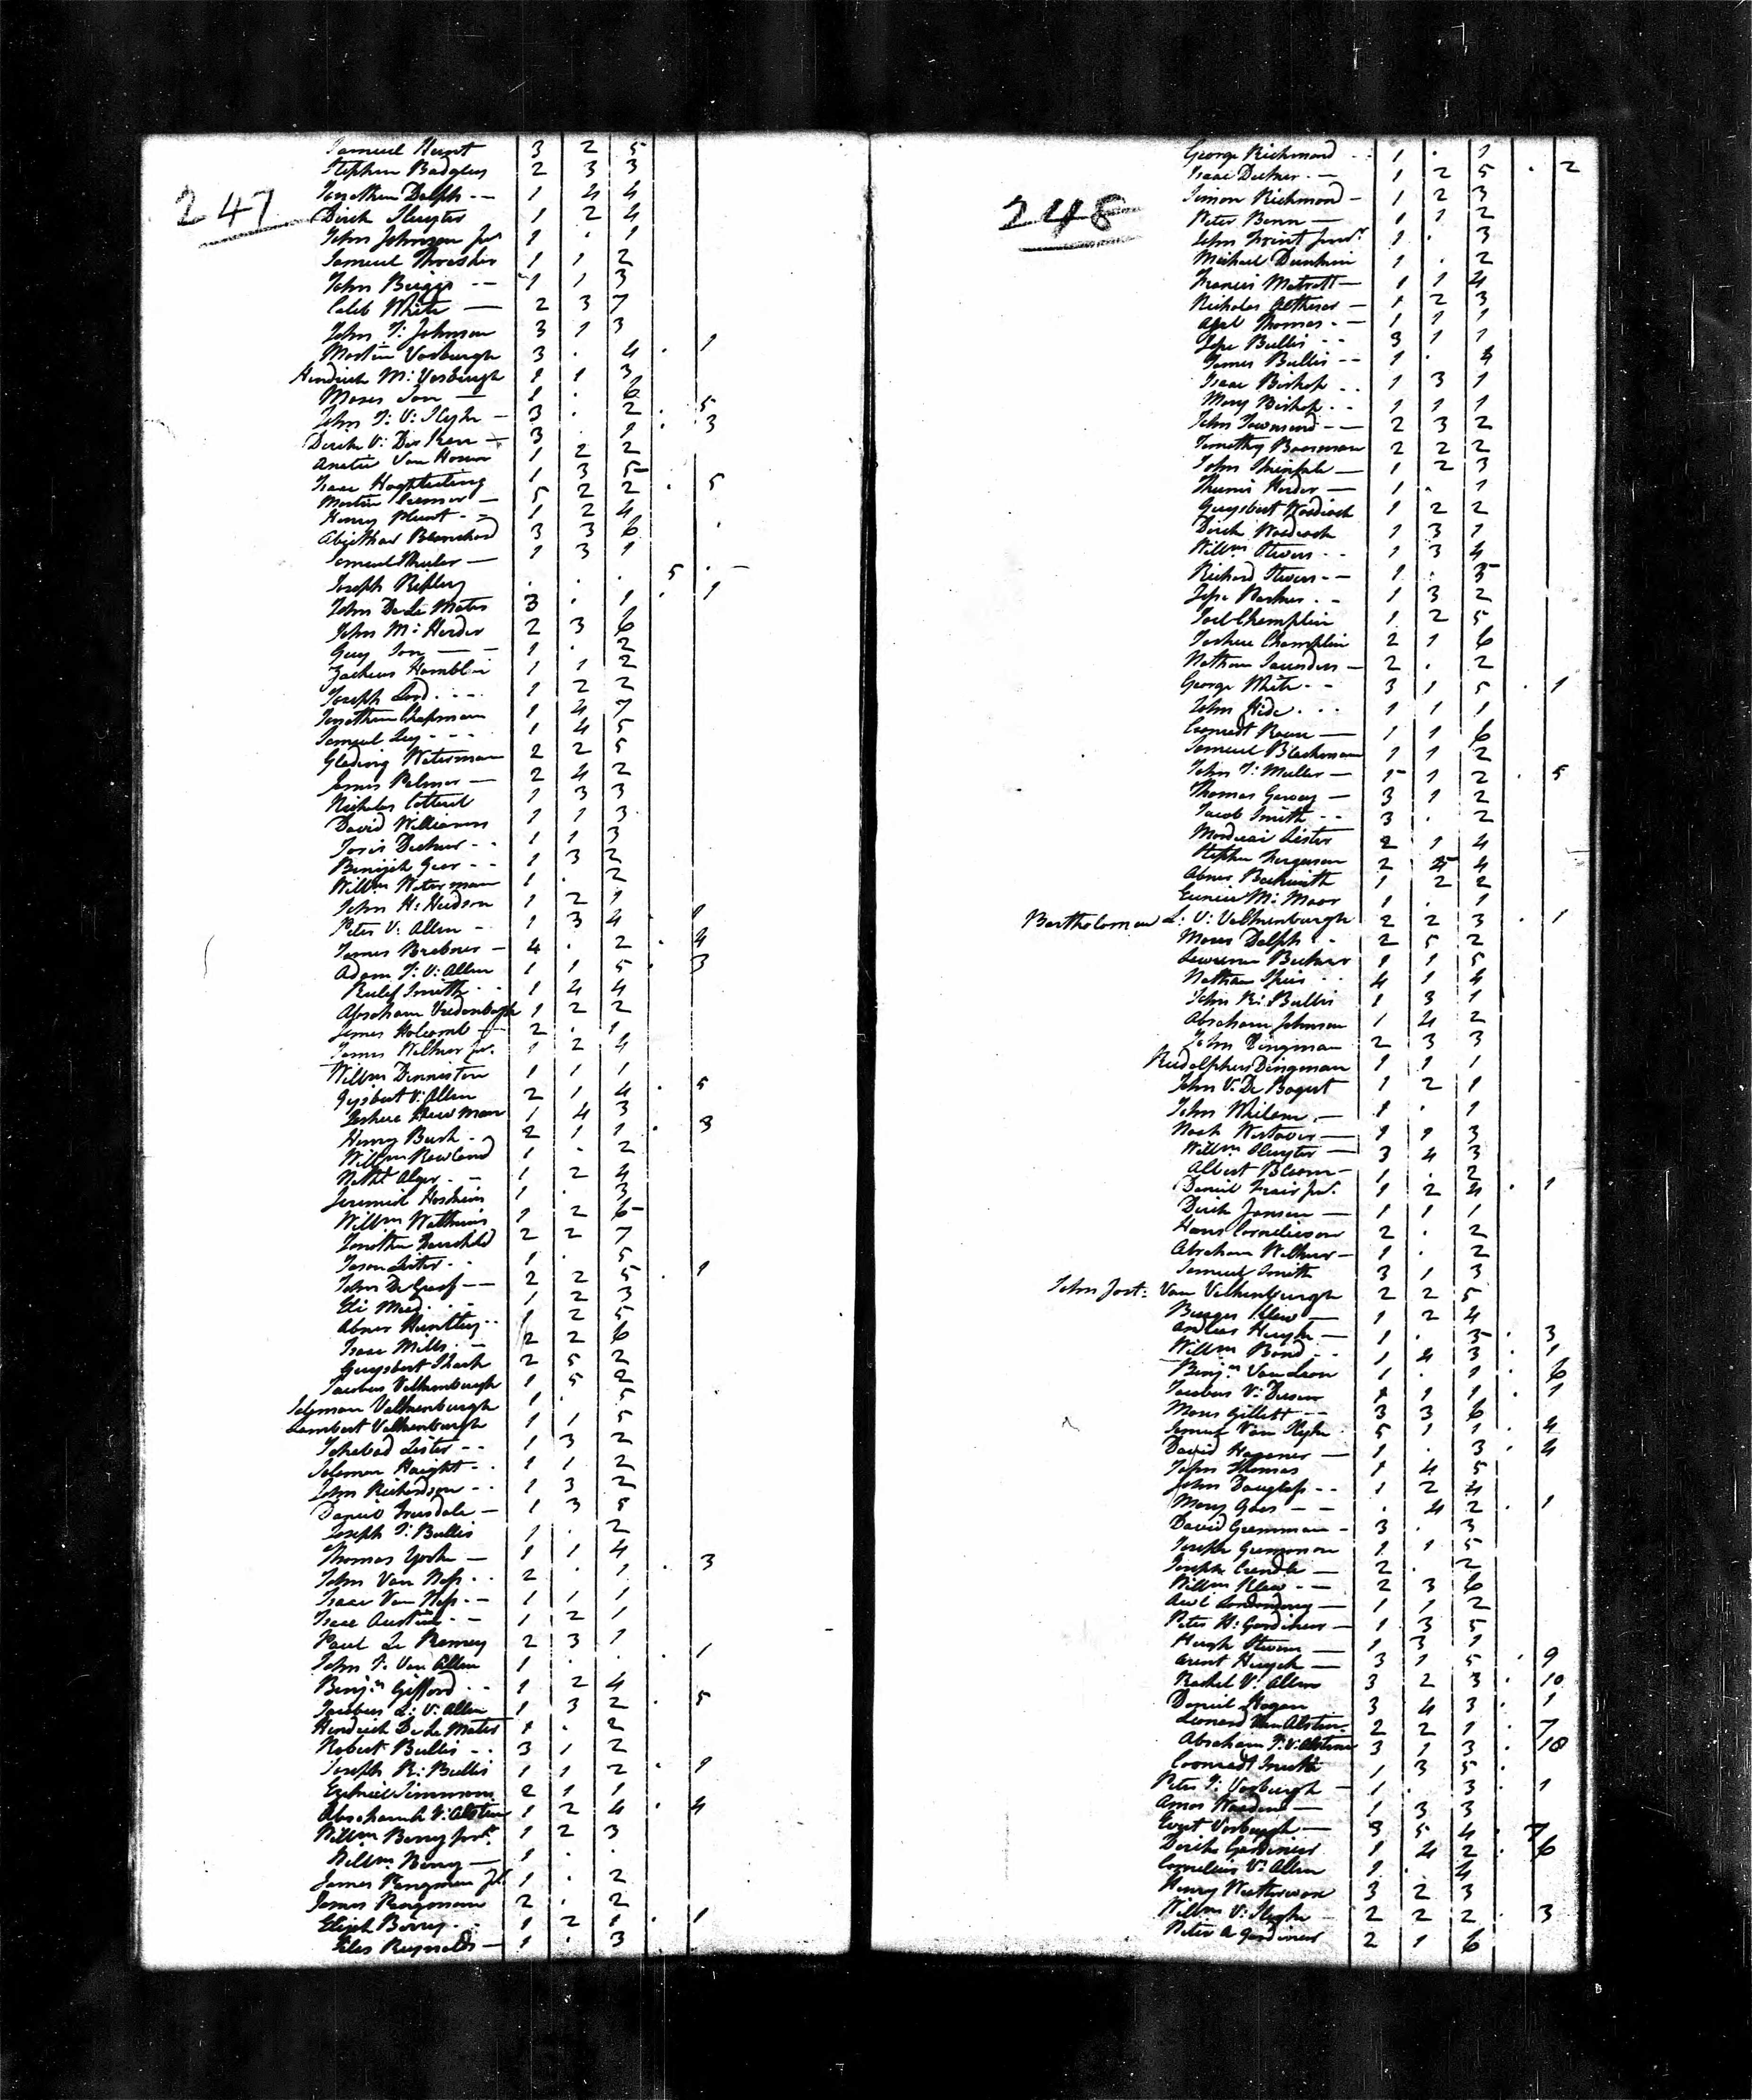 247
Samuel Hunt 3 2 5
Stephen Badgley 2 3 3
Jonathan Dolph -- 1 4 4
Dirck Sluyter 1 2 4
John Johnson Junr 1 . 1
Samuel Thrasher 1 1 2
John Briggs -- 1 1 3
Caleb White — 2 3 7
John T: Johnson 3 1 3
Martin Vosburgh 3 . 4 . 1
Hendrick M: Vosburgh 1 1 3
Moses — 1 . 6
John T: V: Slyke — 3 . 2 . 5
Dirck V: Der Karr 3 . 1 . 3
Van Hosen 1 2 2
Isaac Hogeteeling 1 3 5
Martin Cremer — 5 2 2 . 5
Henry Plunt -- 1 2 4
Abiathar Blanchard 3 3 6 .
Samuel Wheeler — 1 3 1
Joseph Ripley . . . 5 . —
John De La Mater 3 . 1 . 1
John M: Herder 2 3 6
Guy — — 1 . 2
Zacheus Hamblin 1 1 2
Joseph Lord . -- 1 2 2
Jonathan Chapman 1 4 7
Samuel --- 1 4 5
Waterman 2 2 5
James Palmer — 2 4 2
Nicholas Cotterel 1 3 3
David Williams 1 1 3
Joris Decker -- 1 1 3
Benijah Geer -- 1 3 2
Willm Waterman 1 . 2
John H: Hudson 1 2 1
Peter V: Allen - 1 3 4 . 1
James Brebner — 4 . 2 . 4
Adam T: V: Allen 1 1 5 . 3
Rulef Smith -- 1 4 4
Abraham Vredenbergh 1 2 2
James Holcomb — 2 . 1
James Wiltner Jr. 1 2 4
Willm Denniston 1 1 1
Gysbert V: Allen 2 1 4 . 5
Joshua Newman 1 4 3
Henry Bush - 2 1 1 . 3
Willm Rowland 1 . 2
Nathl Alger. -- 1 2 4
Jeremiah Hoskins 1 . 3
Willm Watkins 1 2 6
Jonathan Fairchild 2 2 7
Jason Lester -- 1 . 5
John De Graef -- 2 2 5 . 1
Eli Mead . -- 1 2 3
Abner Huntley -- 1 2 5
Isaac Mills. — 2 2 6
Guysbert Shark 2 5 2
Jacobus Valkenburgh 1 5 2
Soloman Valkenburgh 1 . 5
Lambert Valkenburgh 1 1 5
Ichabod Lester -- 1 3 2
Soloman Haight -- 1 1 2
John Richardson -- 1 3 2
Daniel Truesdale — 1 3 5
Joseph T: Bullis 1 . 2
Thomas York — 1 1 4
John Van Ness . . 2 . 1 . 3
Isaac Van Ness. — 1 1 1
Isaac Austin -- 1 2 1
Paul La Ramey 2 3 1
John T: Van Allen 1 . . . 1
Benjn Gifford -- 1 2 4
Jacobus L: V: Allen 1 3 2 . 5
Hendrick De La Mater 1 . 2
Robert Bullis -- 3 1 2
Joseph R: Bullis 1 1 2 . 1
Ezekiel Simmons 2 1 1
Abraham V: Alstine 1 2 4 . 4
Willm Berry Junr. 1 2 3
Willm Berry — 1 . .
James Jr 1 . 2
James 2 . 2
Elijah Berry . . 1 2 1 . 1
Giles Reynolds — 1 . 3
248
George Richmond . . 1 . 1
Isaac Decker . — 1 2 5 . 2
Simon Richmond — 1 2 3
Peter Bonn — 1 1 2
John Junr 1 . 3
Michael 1 . 2
Francis — 1 1 4
Nicholas — 1 2 3
Thomas . — 1 1 1
Jesse Bullis -- 3 1 1
James Bullis -- 1 . 4
Isaac Bishop . . 1 3 1
Mary Bishop . . 1 1 1
John Townsend -- 2 3 2
Timothy Boorman 2 2 2
John — 1 2 3
Theunis Herder — 1 . 1
Guysbert Woodcock 1 2 2
Dirck Woodcock 1 3 1
Willm Stevens -- 1 3 4
Richard Stevens -- 1 . 5
Jesse Barker . — 1 3 2
Joel Champlin 1 2 5
Joshua Champlin 2 1 6
Nathan Saunders — 2 . 2
George White -- 3 1 5 . 1
John Hide . . . 1 1 1
Conradt — 1 1 6
Samuel Blackman 1 1 2
John T: Muller — 5 1 2 . 5
Thomas Garvey — 3 1 2
Jacob Smith -- 3 . 2
Mordecai Lester 2 1 4
Stephen Ferguson 2 4 4
Abner Beckwith 1 2 2
Eunice Mc: Moor 1 . 1
Bartholomew L: V: Valkenburgh 2 2 3 . 1
Moses Dolph -- 2 5 2
Lawrence Decker 1 1 5
Nathan Spier -- 4 1 4
John R: Bullis 1 3 1
Abraham Johnson 1 4 2
John Dingman 2 3 3
Rudolphus Dingman 1 1 1
John V: De Bogert 1 2 1
John — 1 . 1
Noah Westover — 1 1 3
Willm Sluyter — 3 4 3
Albert Bloom — 1 . 2
Daniel Jr. 1 2 4 . 1
Dirck Jansen — 1 1 1
Hans Cornelieson 2 . 2
Abraham Wiltner — 1 . 2
Samuel Smith 3 1 3
John Jost: Van Valkenburgh 2 2 5
Burger Klaw — 1 2 4
Andries Huyck — 1 . 5 . 3
Willm Bond -- 1 4 3 . 1
Benjn Van Loon 1 . 1 . 6
Jacobus V: Deusen 1 1 1 . 1
Moses Gillett -- 3 3 6
Van Slyke 5 1 1 . 4
David — 1 . 3 . 4
John Thomas 1 4 5
John Douglass -- 1 2 4
Mary Goes — — . 4 2 . 1
David Gramman - 3 . 3
Joseph Gramman 1 1 5
Joseph Crandle — 2 . 2
Willm Klaw -- 2 3 6
— 1 1 2
Peter H: Gardineer — 1 3 5
Hugh Stevens — 1 3 1
Arent Huyck — 3 1 5 . 9
Rachel V: Allen 3 2 3 . 10
Daniel Hogan 3 4 3 . 1
Leonard Van Alstine 2 2 1 . 7
Abraham T: V: Alstine 3 1 3 . 10
Coonradt Smith 1 3 5 .
Peter T: Vosburgh — 1 . 3 . 1
Amos Warden — 1 3 3
Evert Vosburgh — 3 5 4 . 7
Dirck Gardineer 1 4 2 . 6
Cornelius V: Allen 1 . 4
Henry Wetherwax 3 2 3
Willm V: Slyke — 2 2 2 . 3
Peter A Gardineer 2 1 6